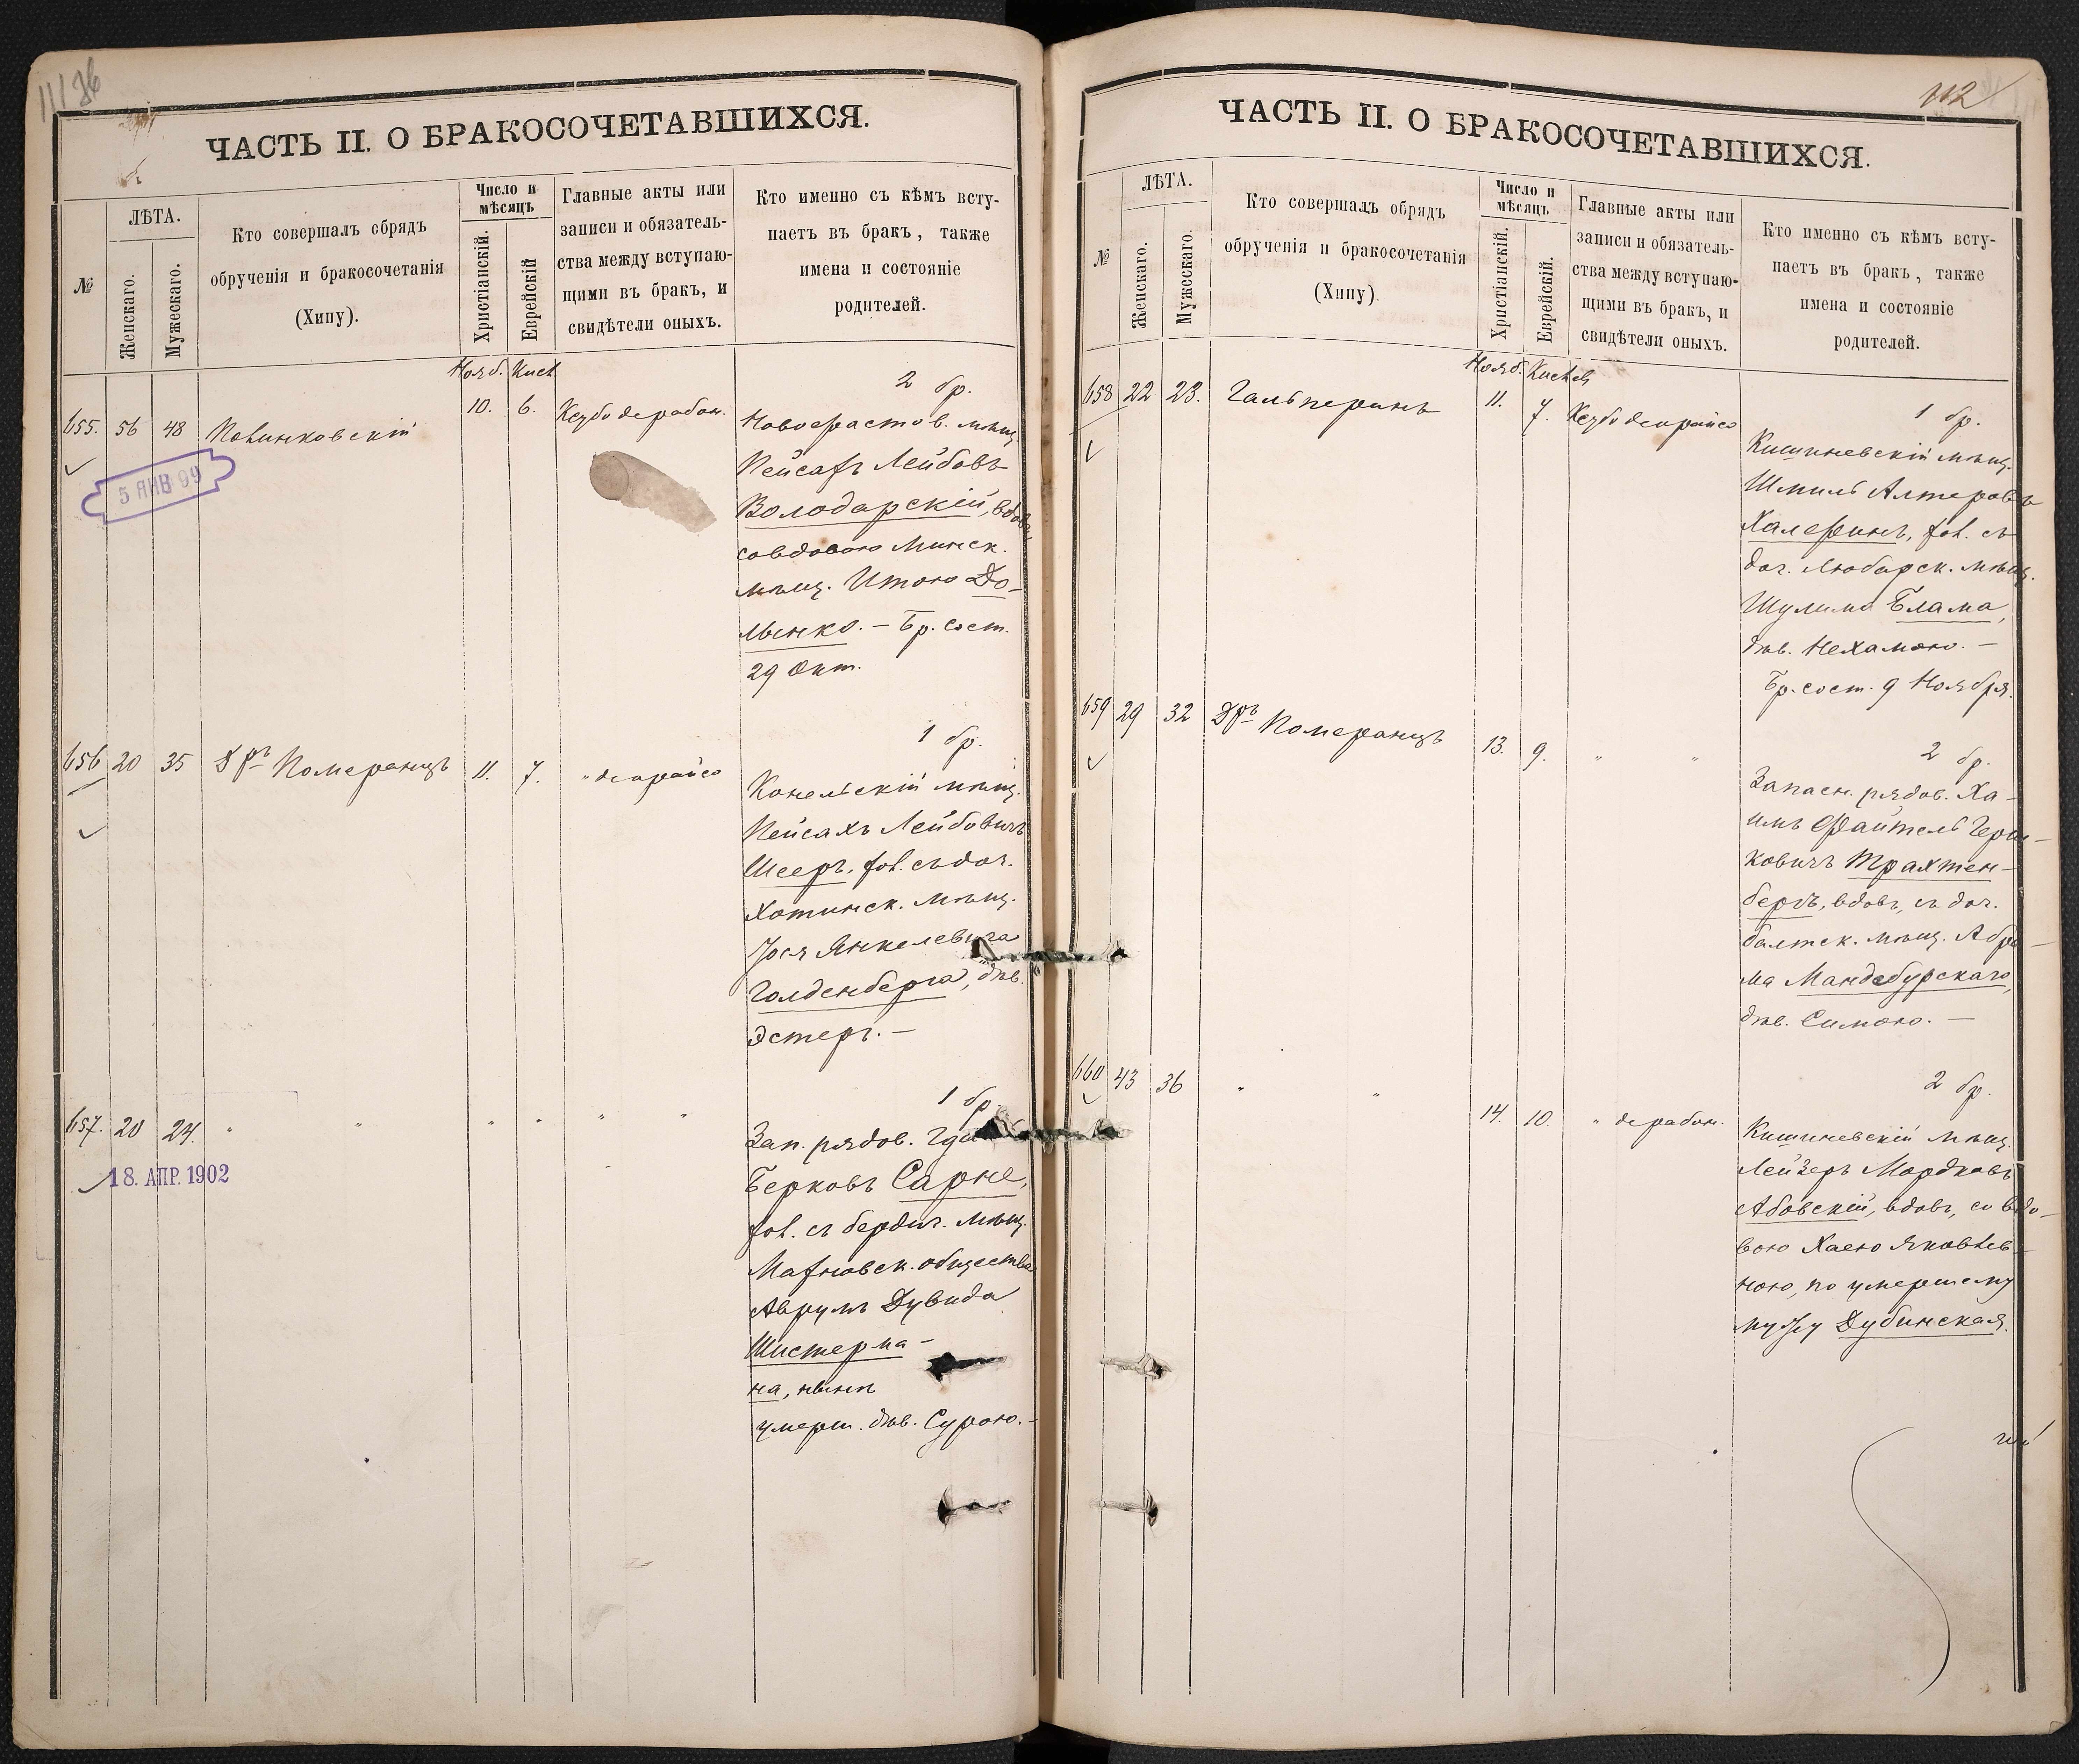 ЧАСТЬ II. О БРАКОСОЧЕТАВШИХСЯ.
№
ЛѢТА.
Женскаго.
Мужескаго.
Кто совершалъ обрядъ
обрученія и бракосочетанія
(Хипу).
Число и
мѣсяцъ
Христіанскій.
Еврейскій
Главные акты или
записи и обязатель-
ства между вступаю-
щими въ бракъ, и
свидѣтели оныхъ.
Кто именно съ кѣмъ всту-
паетъ въ бракъ, также
имена и состояніе
родителей.
Нояб. Кисл
655. 56 48 10. 6.
5 ЯНВ 99
2 бр.
мѣщ.
Пейсахъ Лейбовъ
Володарскій, вдов.
со вдовою Минск.
мѣщ. Итою До-
лынко. – Бр. сост.
29 Окт.
656 20 35 Дръ Померанцъ 11. 7.
1 бр.
Конельскій мѣщ.
Пейсахъ Лейбовичъ
Шееръ, хол. съ доч.
Хотинск. мѣщ.
Іося Янкелевича
Голденберга, дѣв.
Эстеръ. –
657. 20 24. " " " " " "
18. АПР. 1902
1 бр.
Зап. рядов.
Берковъ Сарне,
хол. съ бердич. мѣщ.
Махновск. общества
Аврумъ Дувида
Шистерма-
на, нынѣ
умерш. дѣв. Сурою. –
112
ЧАСТЬ II. О БРАКОСОЧЕТАВШИХСЯ.
№
ЛѢТА.
Женскаго.
Мужескаго.
Кто совершалъ обрядъ
обрученія и бракосочетанія
(Хипу).
Число и
мѣсяцъ
Христіанскій.
Еврейскій.
Главные акты или
записи и обязатель-
ства между вступаю-
щими въ бракъ, и
свидѣтели оныхъ.
Кто именно съ кѣмъ всту-
паетъ въ бракъ, также
имена и состояніе
родителей.
Нояб. Кислев
658 22 23. Гальперинъ 11. 7.
1 бр.
Кишиневскій мѣщ.
Шмиль Алтеровъ
Халефинъ, хол. съ
доч. Любарск. мѣщ.
Шулима Блама,
дѣв. Нехамою. –
Бр. сост. 9 Ноября.
659 29 32 Дръ Померанцъ 13. 9. " "
2 бр.
Запасн. рядов. Ха-
имъ Файтель Герш-
ковичъ Трахтен-
бергъ, вдовъ, съ доч.
балтск. мѣщ. Абра-
ма Мандебурскаго,
дѣв. Симою. –
660 43 36 " " 14. 10.
2 бр.
Кишиневскій мѣщ.
Лейзеръ Мордковъ
Абовскій, вдовъ, со вдо-
вою Хаею Яковлев-
ною, по умершему
мужу Дубинская.